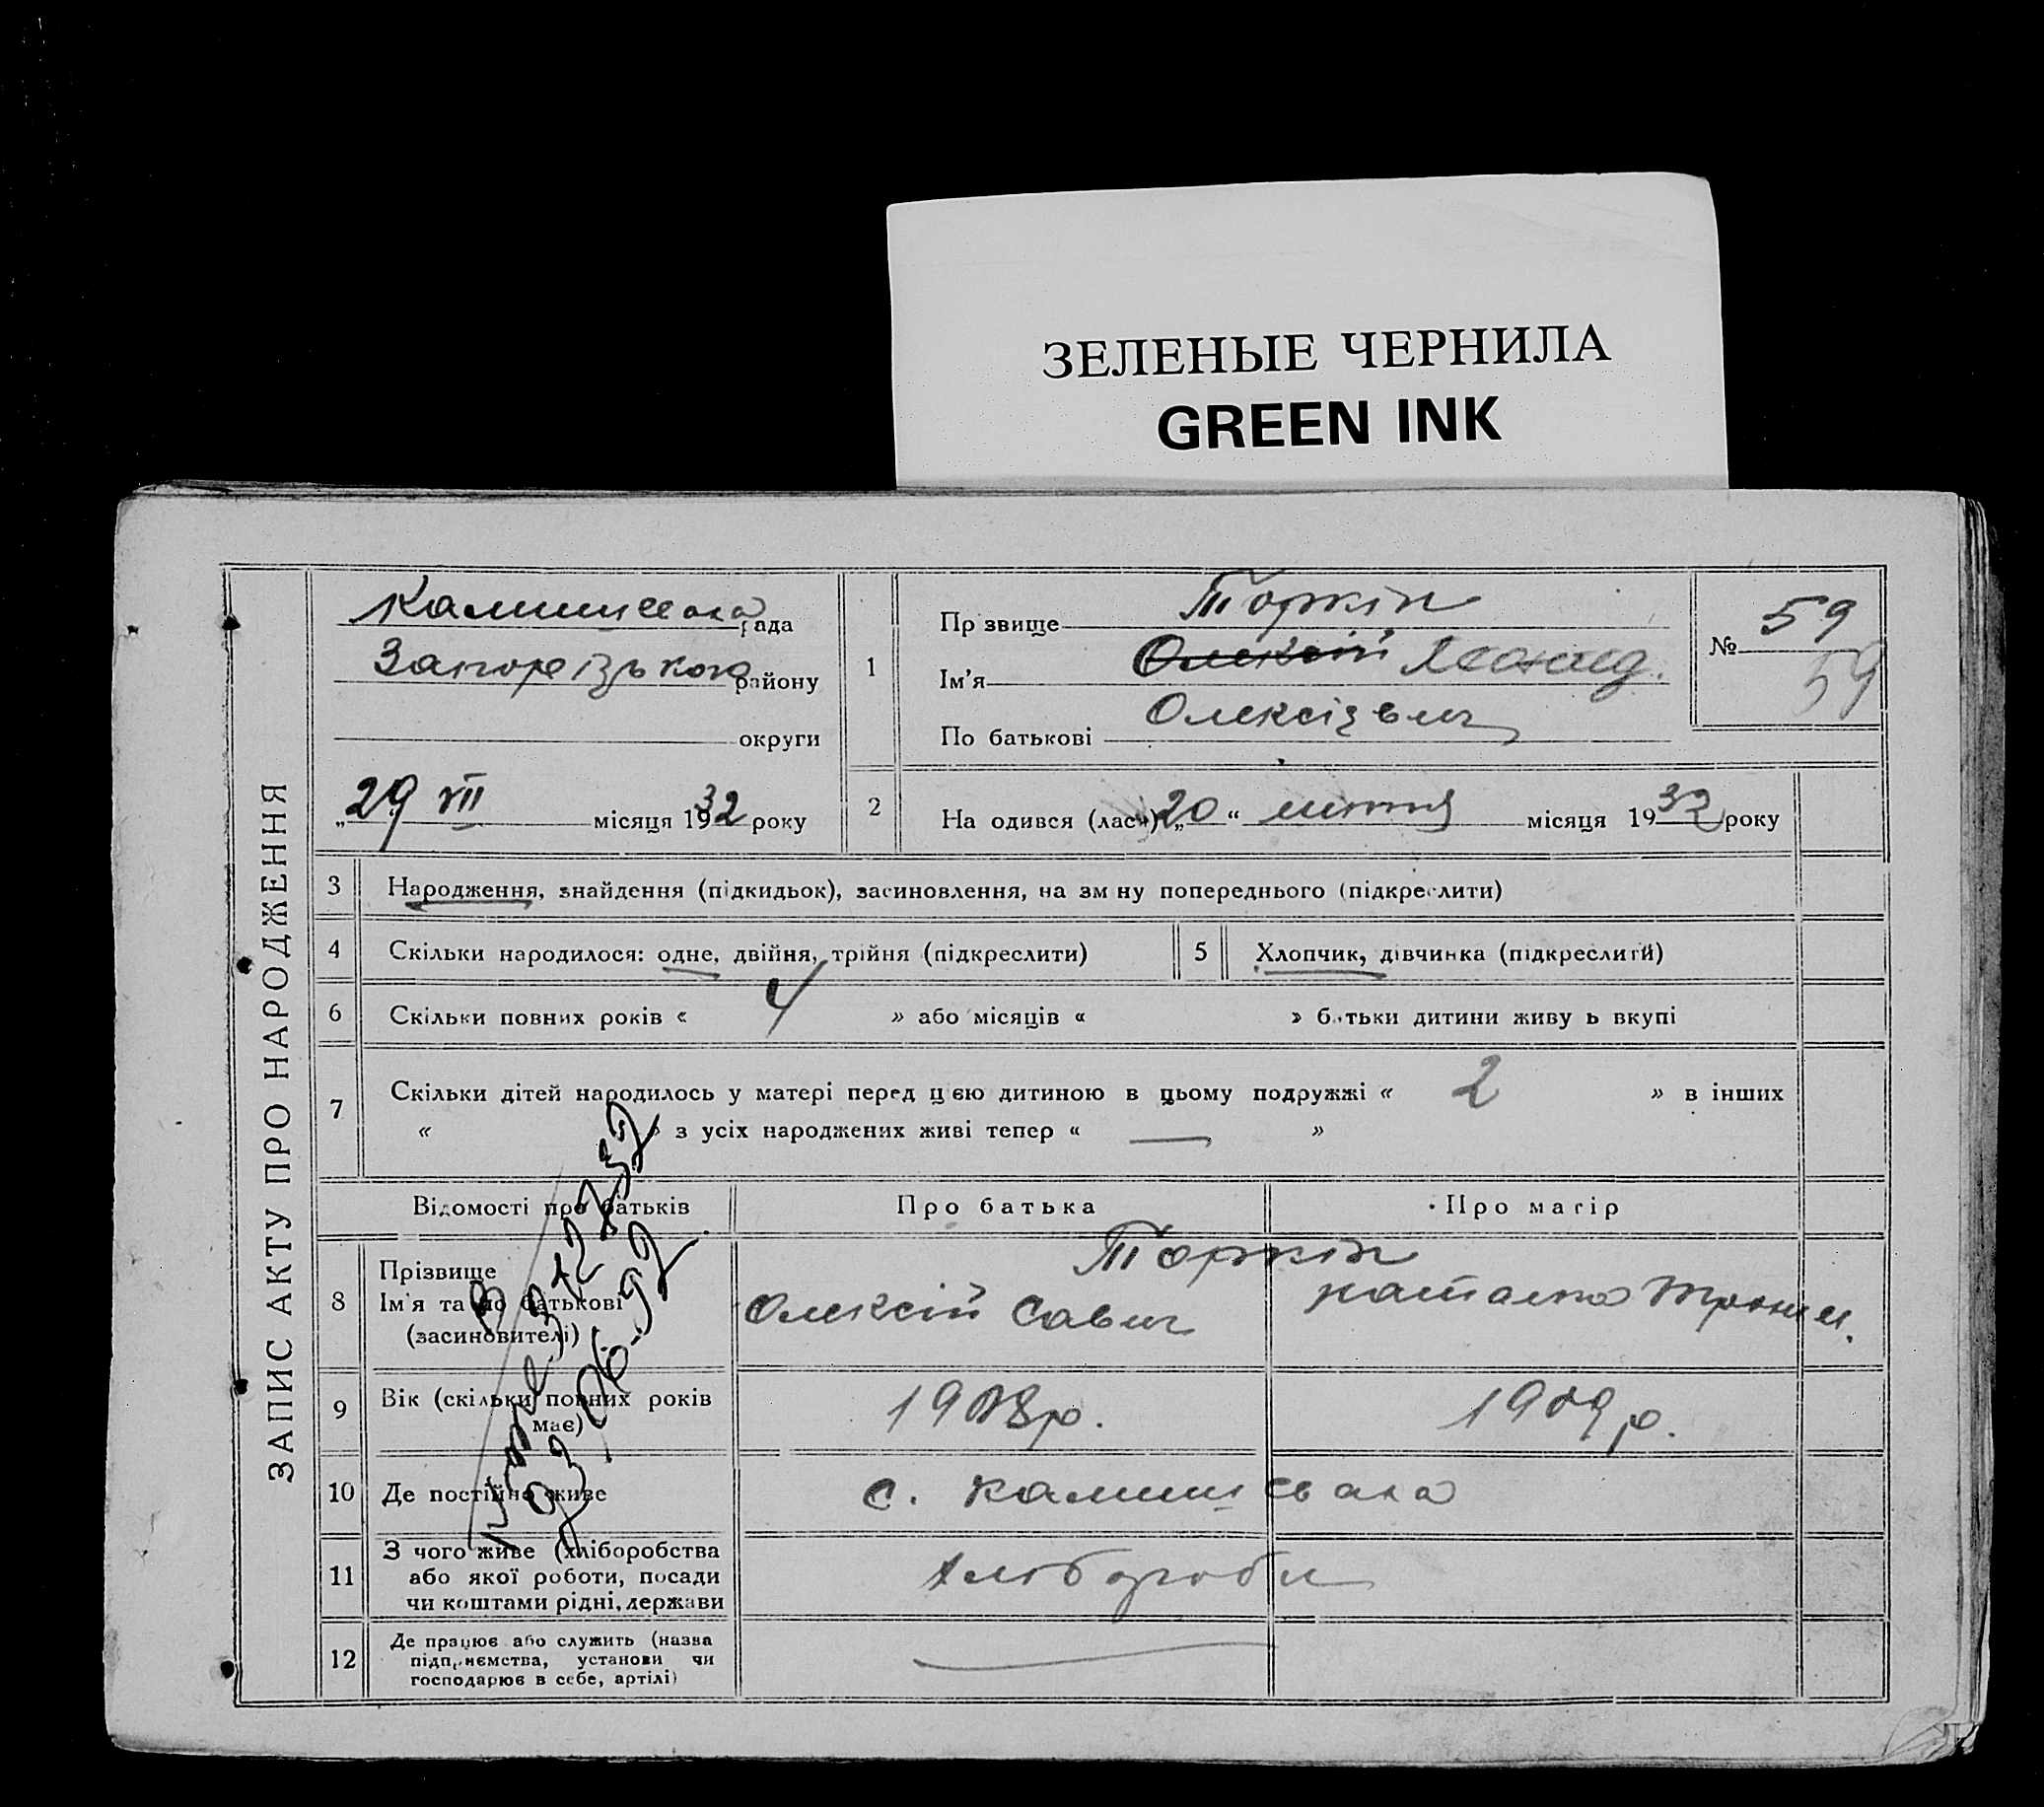 ЗЕЛЕНЫЕ ЧЕРНИЛА
GREEN INK
ЗАПИС АКТУ ПРО НАРОДЖЕННЯ
рада
Запорізького району
округи
„29 VII місяця 1932 року
1
Прізвище Торкін
Ім'я Олексій Леонід.
По батькові Олексієвич
№ 59
59
2
На одився (лась) „20“ лютня місяця 1932 року
3 Народження, знайдення (підкидьок), засиновлення, на зм ну попереднього (підкреслити)
4 Скільки народилося: одне, двійня, трійня (підкреслити)
5 Хлопчик, дівчинка (підкреслити)
6 Скільки повних років « 4 » або місяців « » батьки дитини живу ь вкупі
7 Скільки дітей народилось у матері перед цією дитиною в цьому подружжі « 2 » в інших
« » з усіх народжених живі тепер « — »
Відомості про батьків
Про батька
Про матір
8 Прізвище
Ім'я та по батькові
(засиновителі)
Торкін
Олексій Савич
9 Вік (скільки повних років
має)
1908р.
1909р.
10 Де постійно живе
с.
11 З чого живе (хліборобства
або якої роботи, посади
чи коштами рідні, держави
Хлібороби
12 Де працює або служить (назва
підприємства, установи чи
господарює в себе, артілі)